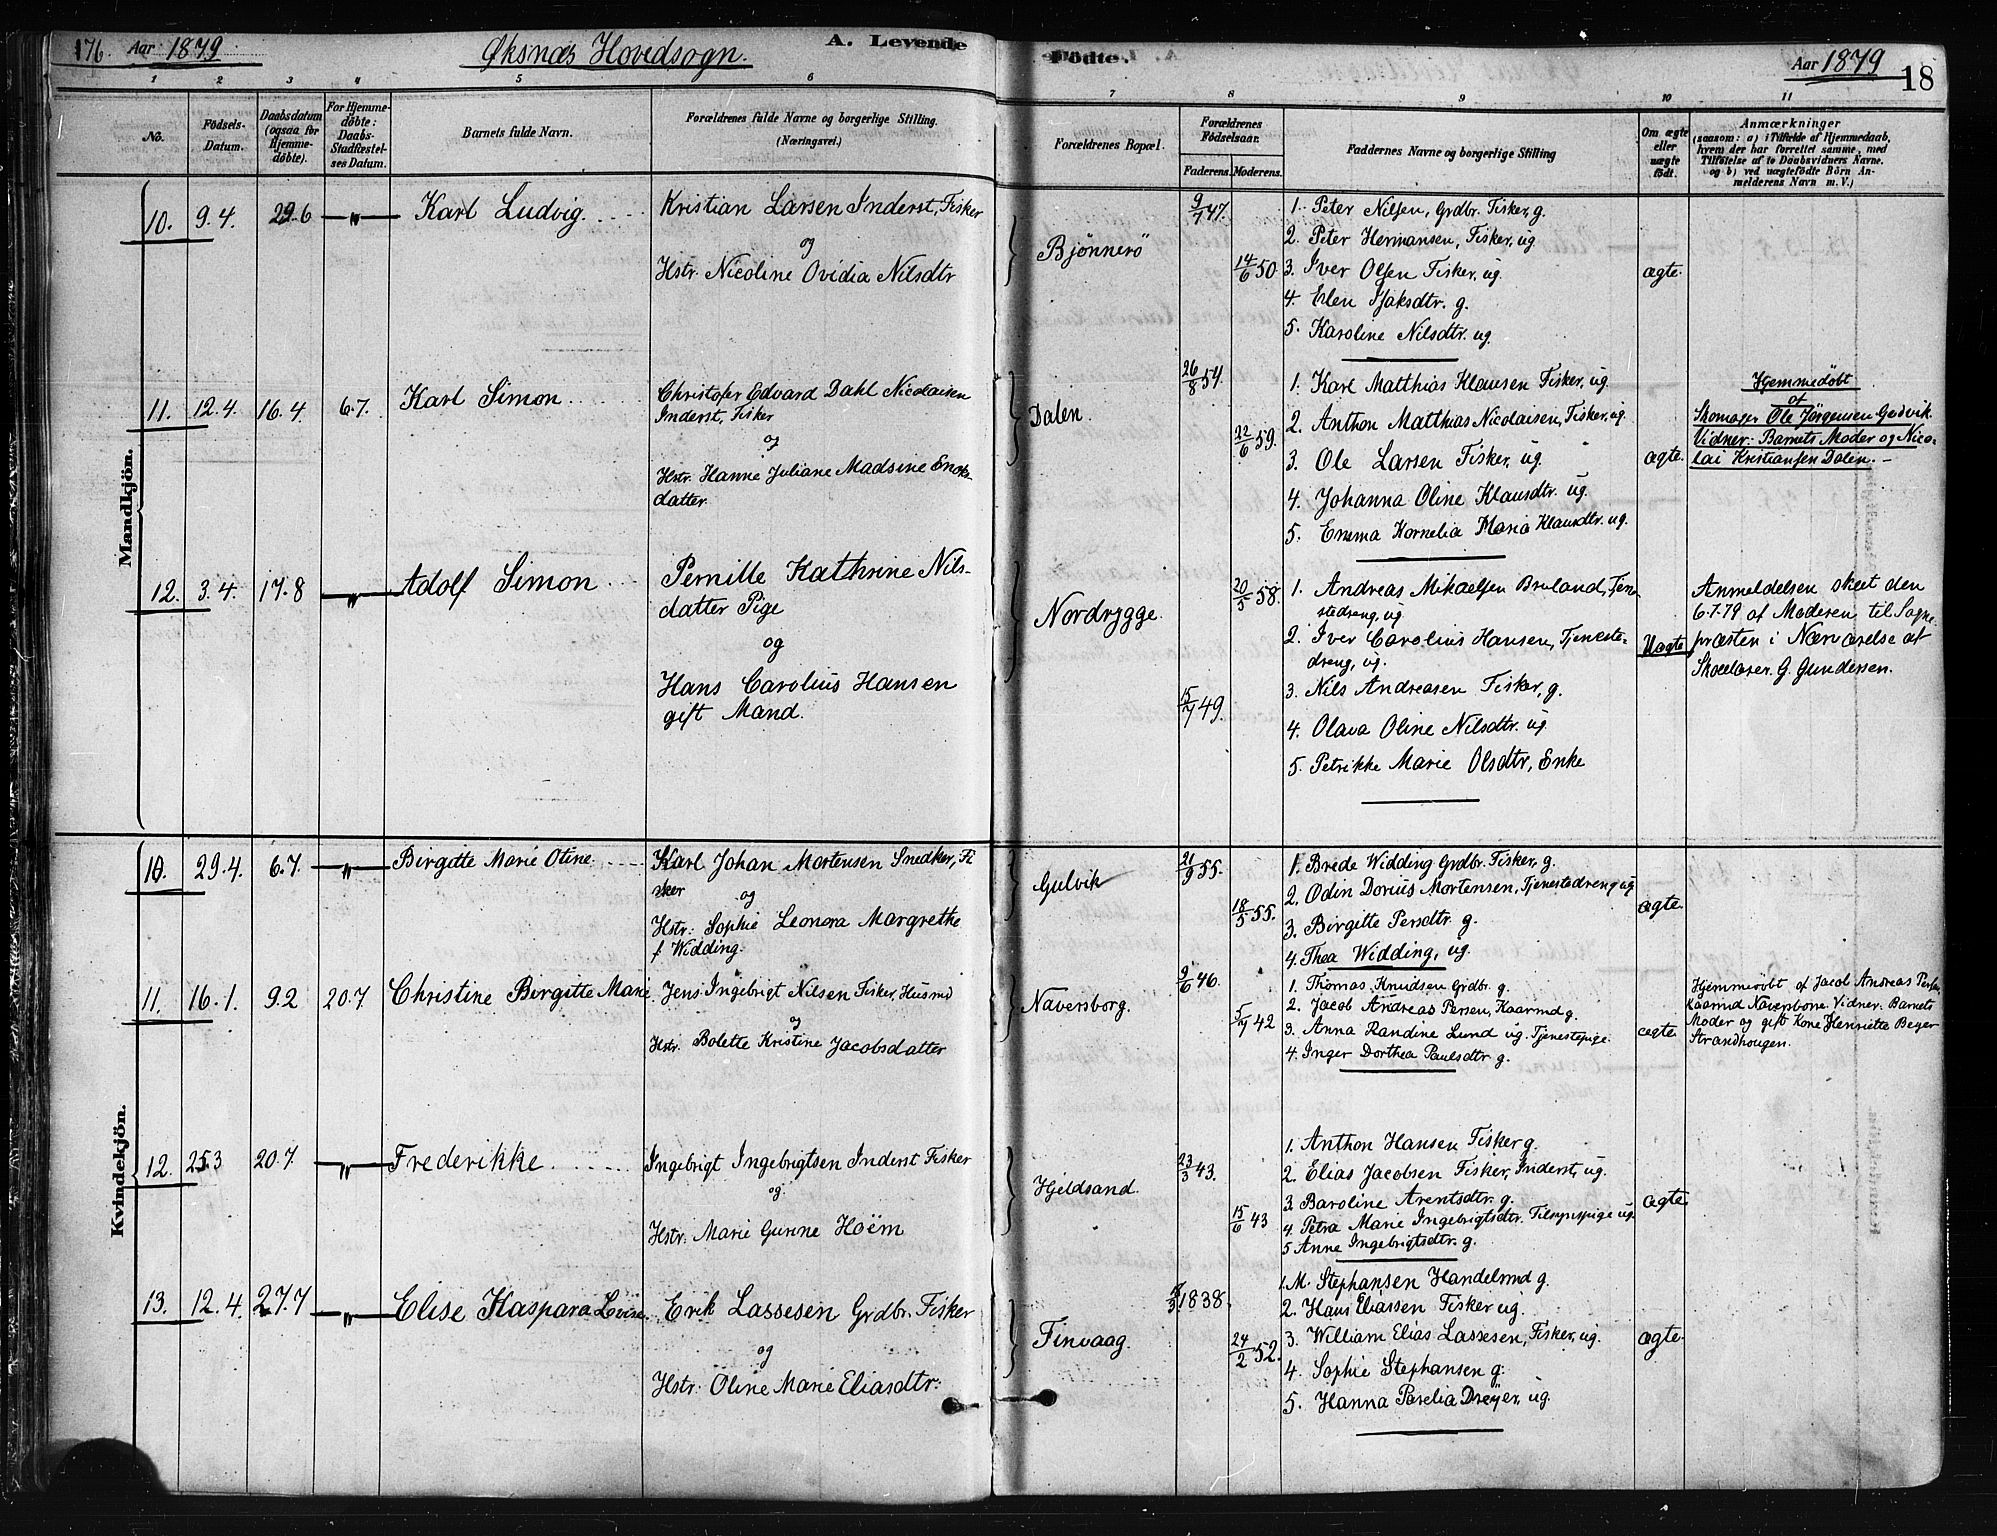 176. Aar 1879 Øksnæs Hovedsogn. A. Levende Födte. Aar 1879 18
1 2 3 4 5 6 7 8 9 10 11
No.
Födsels-Datum.
Daabsdatum (ogsaa for Hjemme-döbte).
For Hjemme-döbte: Daabs-Stadfæstel-ses Datum.
Barnets fulde Navn.
Forældrenes fulde Navne og borgerlige Stilling.
(Næringsvei.)
Forældrenes Bopæl.
Forældrenes Födselsaar.
Faderens. Moderens.
Faddernes Navne og borgerlige Stilling
Om ægte eller uægte födt.
Anmærkninger
(saasom: a) i Tilfælde af Hjemmedaab,
hvem der har forrettet samme, med
Tilföielse af to Daabsvidners Navne.
og b) ved uægtefödte Börn An-
melderens Navn m. V.)
Mandkjön.
10. 9.4. 29.6 —„— Karl Ludvig. Kristian Larsen Inderst, Fisker
og
Hstr. Nicoline Ovidia Nilsdtr
Bjönnerö
9/7 47.
14/6 50.
1. Peter Nilsen, Grdbr. Fisker, g.
2. Peter Hermansen, Fisker, ug.
3. Iver Olsen Fisker, ug.
4. Elen Isaksdtr. g.
5. Karoline Nilsdtr. ug.
ægte.
11. 12.4. 16.4 6.7. Karl Simon Christofer Edvard Dahl Nicolaisen
Inderst, Fisker
og
Hstr. Hanne Juliane Madsine Enoks-
datter.
Dalen.
26/8 54.
22/6 59.
1. Karl Matthias Klausen Fisker, ug.
2. Anthon Matthias Nicolaisen, Fisker, ug.
3. Ole Larsen Fisker, ug.
4. Johanna Oline Klausdtr. ug.
5. Emma Kornelia Maria Klausdtr. ug.
ægte.
Hjemmedöbt
af
Skomager Ole Jörgensen Gudvik.
Vidner: Barnets Moder og Nico-
lai Kristiansen Dalen. —
12. 3.4. 17.8 —„— Adolf Simon Pernille Kathrine Nils-
datter Pige
og
Hans Carolius Hansen
gift Mand.
Nordrygge.
20/5 58.
15/7 49.
1. Andreas Mikaelsen Breland, Tjene-
stedreng, ug.
2. Iver Carolius Hansen, Tjeneste-
dreng, ug.
3. Nils Andreasen Fisker, g.
4. Olava Oline Nilsdtr. ug.
5. Petrikke Marie Olsdtr, Enke
Uægte
Anmeldelsen skeet den
6.7.79 af Moderen til Sogne-
præsten i Nærværelse af
Skolelærer G. Gundersen.
Kvindekjön.
10. 29.4. 6.7. —„— Birgitte Marie Otine. Karl Johan Mortensen Snedker, Fi
sker
og
Hstr: Sophie Leonora Margrethe
f Widding.
Gulvik
21/9 55.
18/5 55.
1. Brede Widding Grdbr. Fisker, g.
2. Odin Dorius Mortensen, Tjenestedreng ug
3. Birgitte Persdtr. g.
4. Thea Widding, ug.
ægte.
11. 16.1. 9.2 20.7 Christine Birgitte Marie. Jens Ingebrigt Nilsen Fisker, Husmd
og
Hstr. Bolette Kristine Jacobsdatter
Naversborg.
9/6 46.
5/4 42
1. Thomas Knudsen Grdbr. g.
2. Jacob Andreas Persen, Kaarmd g.
3. Anna Randine Lund ug. Tjenestepige.
4. Inger Dorthea Paulsdtr g.
ægte.
Hjemmedöbt af Jacob Andreas Persen
Kaarmd Naversborg. Vidner. Barnets
Moder og gift Kone Henriette Beyer
Strandhougen.
12. 25.3 20.7. —„— Frederikke Ingebrigt Ingebrigtsen Inderst Fisker
og
Hstr: Marie Gurine Hoëm
Hjeldsand.
23/3 43.
15/6 43
1. Anthon Hansen Fisker g.
2. Elias Jacobsen Fisker, Inderst, ug.
3. Baroline Arentsdtr. g.
4. Petra Marie Ingebrigtsdtr. Tilsynspige ug.
5 Anne Ingebrigtsdtr. g.
ægte.
13. 12.4. 27.7 —„— Elise Kaspara Lovise. Erik Lassesen Grdbr. Fisker
og
Hstr: Oline Marie Eliasdtr.
Finvaag.
1838.
24/2 52.
1. M. Stephansen Handelsmd g.
2. Hans Eliassen Fisker ug.
3. William Elias Lassesen, Fisker, ug.
4. Sophie Stephansen g.
5. Hanna Parelia Dreyer, ug.
ægte.